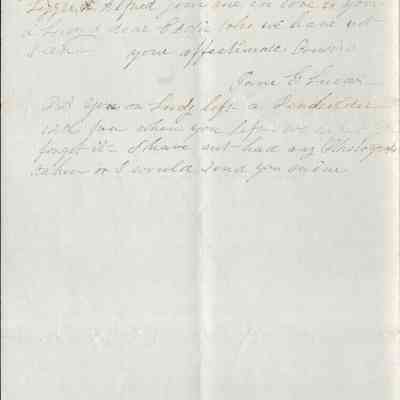 Lizzie & Alfred join me in love to you
dear Eddie who we have not
seen your affectionate Cousin
Jane E Lucas
PS You or Lucy left a
with Jane when you left we
forgot it - I have not had any Photographs
taken or I would send you one